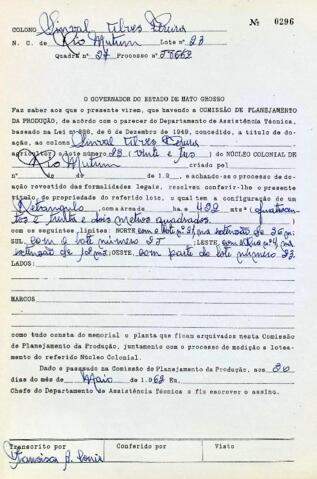 Nº 0296
COLONO Sinval Alves Pereira
N. C. de Rio Mutum Lote nº 23
Quadra nº 27 Processo nº
O GOVERNADOR DO ESTADO DE MATO GROSSO
Faz saber aos que o presente virem, que havendo a COMISSÃO DE PLANEJAMENTO
DA PRODUÇÃO, de acôrdo com o parecer do Departamento de Assistência Técnica,
baseado na Lei nº 336, de 6 de Dezembro de 1949, concedido, a título de do-
ação, ao colono Sinval Alves Pereira
agricultor o lote número 23 (vinte e tres) do NÚCLEO COLONIAL DE
Rio Mutum criado pel
nº de de de 19 , e achando-se o processo de do-
ação revestido das formalidades legais, resolveu conferir-lhe o presente
título, de propriedade do referido lote, o qual tem a configuração de um
Retangulo com a área de ha e 432 mts² (quatrocen-
tos e trinta e dois metros quadrados.
com os seguintes limites: NORTE com o lote nº 21, na extensão de 36 m
SUL, com o lote número 25 ;LESTE, com a Rua nº 4, na
extensão de 12 ms; OESTE, com parte do lote número 23.
LADOS:
MARCOS
como tudo consta do memorial e planta que ficam arquivados nesta Comissão
de Planejamento da Produção, juntamente com o processo de medição e lotea-
mento do referido Núcleo Colonial.
Dado e passado na Comissão de Planejamento da Produção, aos 20
dias do mês de Maio de 1.963 Eu,
Chefe do Departamento de Assistência Técnica o fiz escrever o assino.
Transcrito por Conferido por Visto
Francisca A.